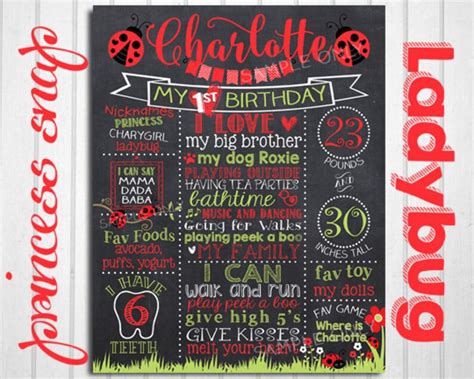 princess snap
Charlotte
SAMPLE ONLY
MY 1st BIRTHDAY
Nicknames
PRINCESS
CHARYGIRL
ladybug
I CAN SAY
MAMA
DADA
BABA
Fav Foods
avocado,
puffs, yogurt
I HAVE
6
TEETH
I LOVE
my big brother
my dog Roxie
PLAYING OUTSIDE
HAVING TEA PARTIES
bathtime
MUSIC AND DANCING
Going for Walks
playing peek a boo
MY FAMILY
I CAN
walk and run
play peek a boo
give high 5's
GIVE KISSES
melt your heart
23
POUNDS
AND
30
INCHES TALL
fav toy
my dolls
FAV GAME
Where is
Charlotte
Ladybug